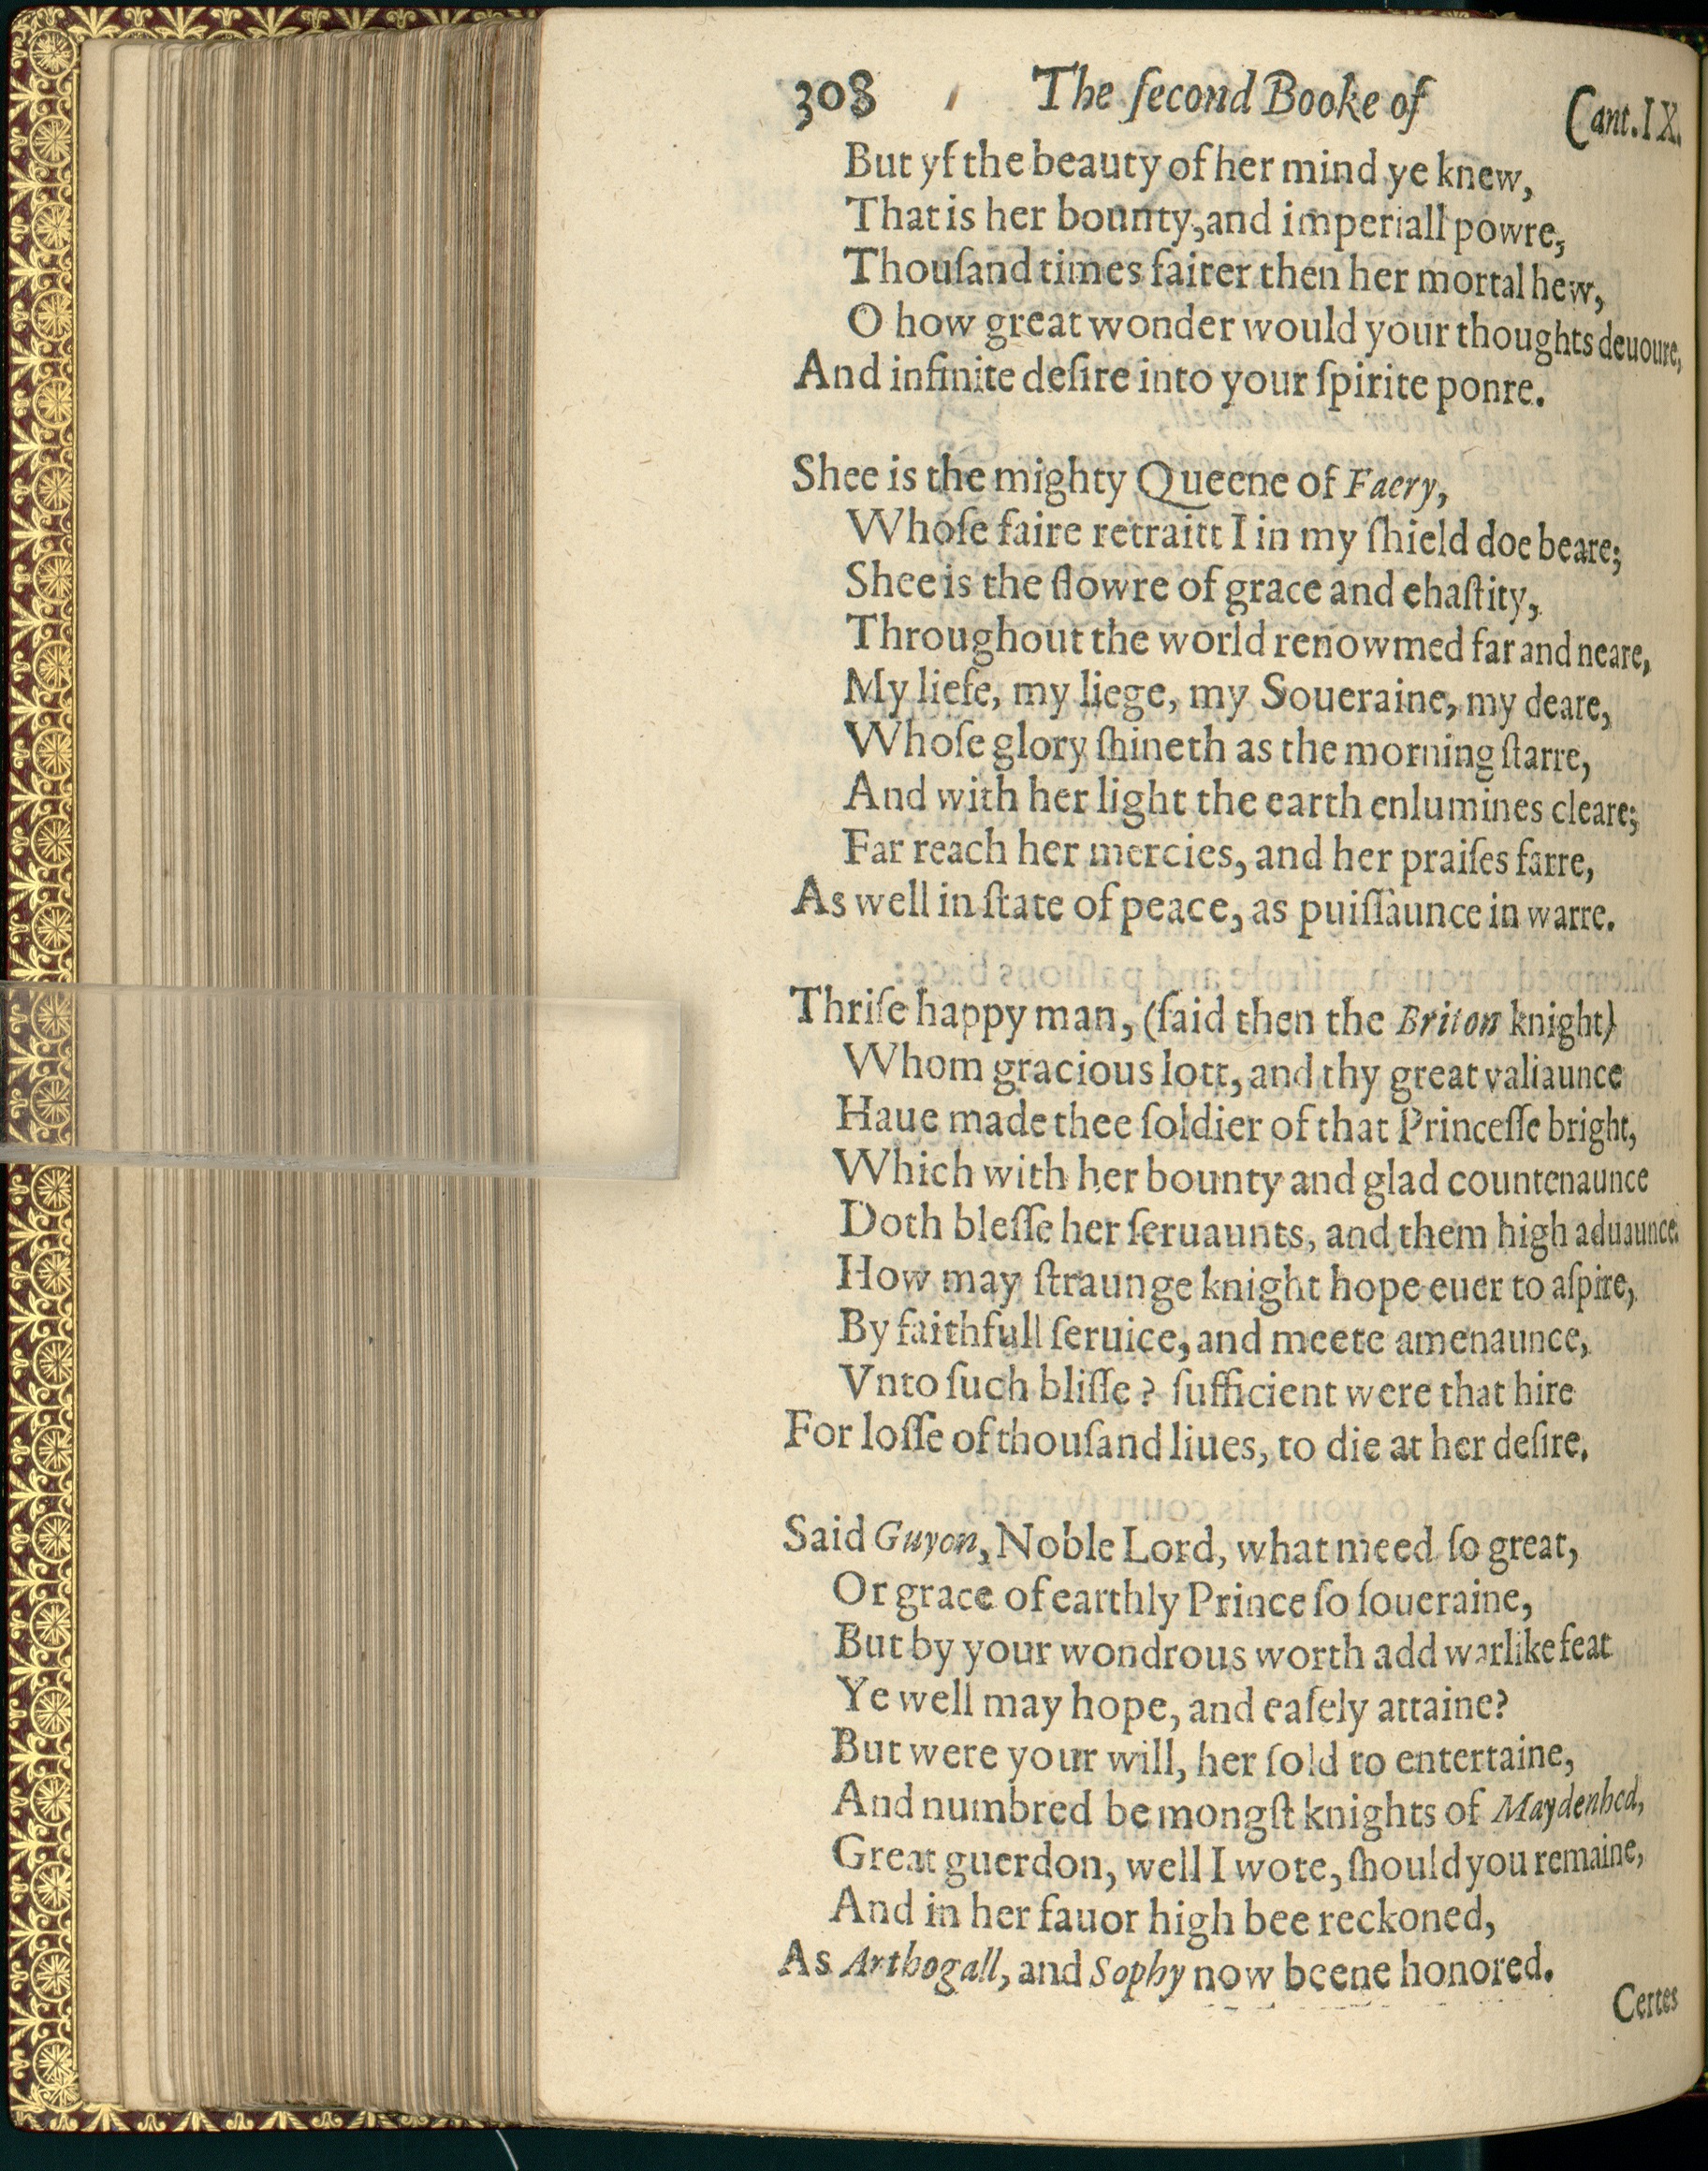 308 The ſecond Booke of Cant. IX.
But yf the beauty of her mind ye knew,
That is her bounty, and imperiall powre,
Thouſand times fairer then her mortal hew,
O how great wonder would your thoughts deuoure,
And infinite deſire into your ſpirite ponre.
Shee is the mighty Queene of Faery,
Whoſe faire retraitt I in my ſhield doe beare;
Shee is the flowre of grace and ehaſtity,
Throughout the world renowmed far and neare,
My liefe, my liege, my Soueraine, my deare,
Whoſe glory ſhineth as the morning ſtarre,
And with her light the earth enlumines cleare;
Far reach her mercies, and her praiſes farre,
As well in ſtate of peace, as puiſſaunce in warre.
Thriſe happy man, (ſaid then the Briton knight)
Whom gracious lott, and thy great valiaunce
Haue made thee ſoldier of that Princeſſe bright,
Which with her bounty and glad countenaunce
Doth bleſſe her ſeruaunts, and them high aduaunce.
How may ſtraunge knight hope euer to aſpire,
By faithfull ſeruice, and meete amenaunce,
Vnto ſuch bliſſe? ſufficient were that hire
For loſſe of thouſand liues, to die at her deſire.
Said Guyon, Noble Lord, what meed ſo great,
Or grace of earthly Prince ſo ſoueraine,
But by your wondrous worth add warlike feat
Ye well may hope, and eaſely attaine?
But were your will, her ſold to entertaine,
And numbred be mongſt knights of Maydenhed,
Great guerdon, well I wote, ſhould you remaine,
And in her fauor high bee reckoned,
As Arthogall, and Sophy now beene honored.
Certes